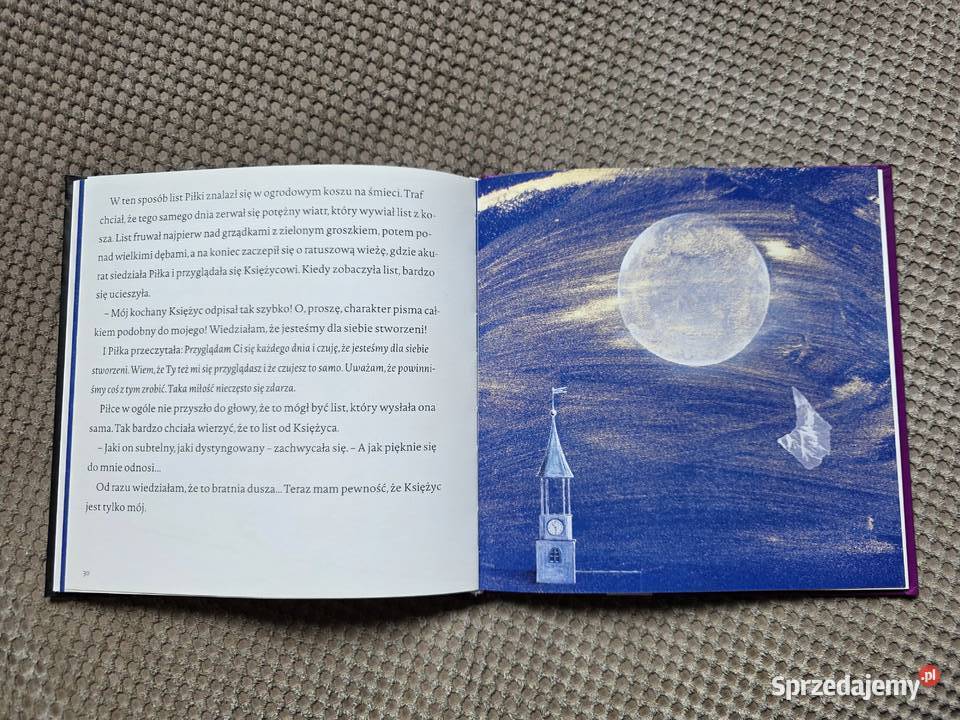 W ten sposób list Piłki znalazł się w ogrodowym koszu na śmieci. Traf
chciał, że tego samego dnia zerwał się potężny wiatr, który wywiał list z ko-
sza. List fruwał najpierw nad grządkami z zielonym groszkiem, potem po-
nad wielkimi dębami, a na koniec zaczepił się o ratuszową wieżę, gdzie aku-
rat siedziała Piłka i przyglądała się Księżycowi. Kiedy zobaczyła list, bardzo
się ucieszyła.
– Mój kochany Księżyc odpisał tak szybko! O, proszę, charakter pisma cał-
kiem podobny do mojego! Wiedziałam, że jesteśmy dla siebie stworzeni!
I Piłka przeczytała: Przyglądam Ci się każdego dnia i czuję, że jesteśmy dla siebie
stworzeni. Wiem, że Ty też mi się przyglądasz i że czujesz to samo. Uważam, że powinni-
śmy coś z tym zrobić. Taka miłość nieczęsto się zdarza.
Piłce w ogóle nie przyszło do głowy, że to mógł być list, który wysłała ona
sama. Tak bardzo chciała wierzyć, że to list od Księżyca.
– Jaki on subtelny, jaki dystyngowany – zachwycała się. – A jak pięknie się
do mnie odnosi...
Od razu wiedziałam, że to bratnia dusza... Teraz mam pewność, że Księżyc
jest tylko mój.
30
Sprzedajemy.pl